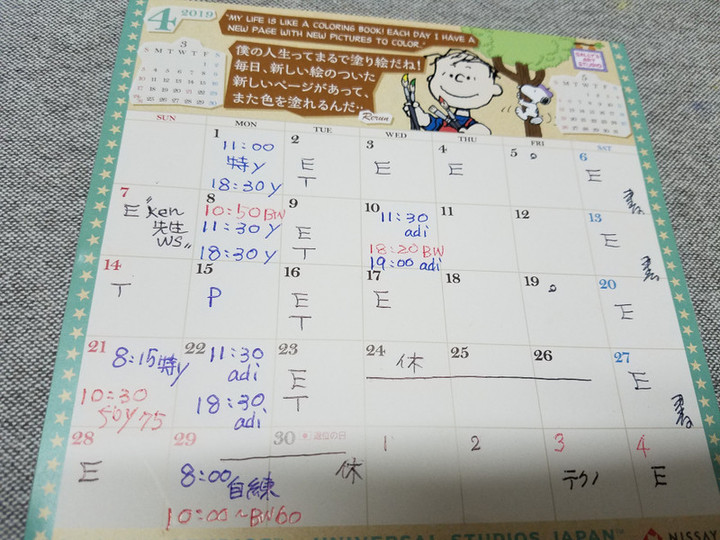 4 2019
"MY LIFE IS LIKE A COLORING BOOK! EACH DAY I HAVE A
NEW PAGE WITH NEW PICTURES TO COLOR."
僕の人生ってまるで塗り絵だね!
毎日、新しい絵のついた
新しいページがあって、
また色を塗れるんだ…
Rerun
SALLY'S
ART
STUDIO
3
S M T W T F S
5
SUN MON TUE WED THU FRI SAT
1 11:00 特y 18:30 y
2 E T
3 E
4 E
5
6 E
7 E "Ken 先生 WS"
8 10:50 BW 11:30 y 18:30 y
9 E T
10 11:30 adi 18:20 BW 19:00 adi
11
12
13 E
14 T
15 P
16 E T
17 E
18
19
20 E
21 8:15 特y 10:30 50y75
22 11:30 adi 18:30 adi
23 E T
24 休
25
26
27 E
28 E
29 8:00 自練 10:00~BW60
30 退位の日 休
1
2
3 テクノ
4 E
UNIVERSAL STUDIOS JAPAN™
NISSAY